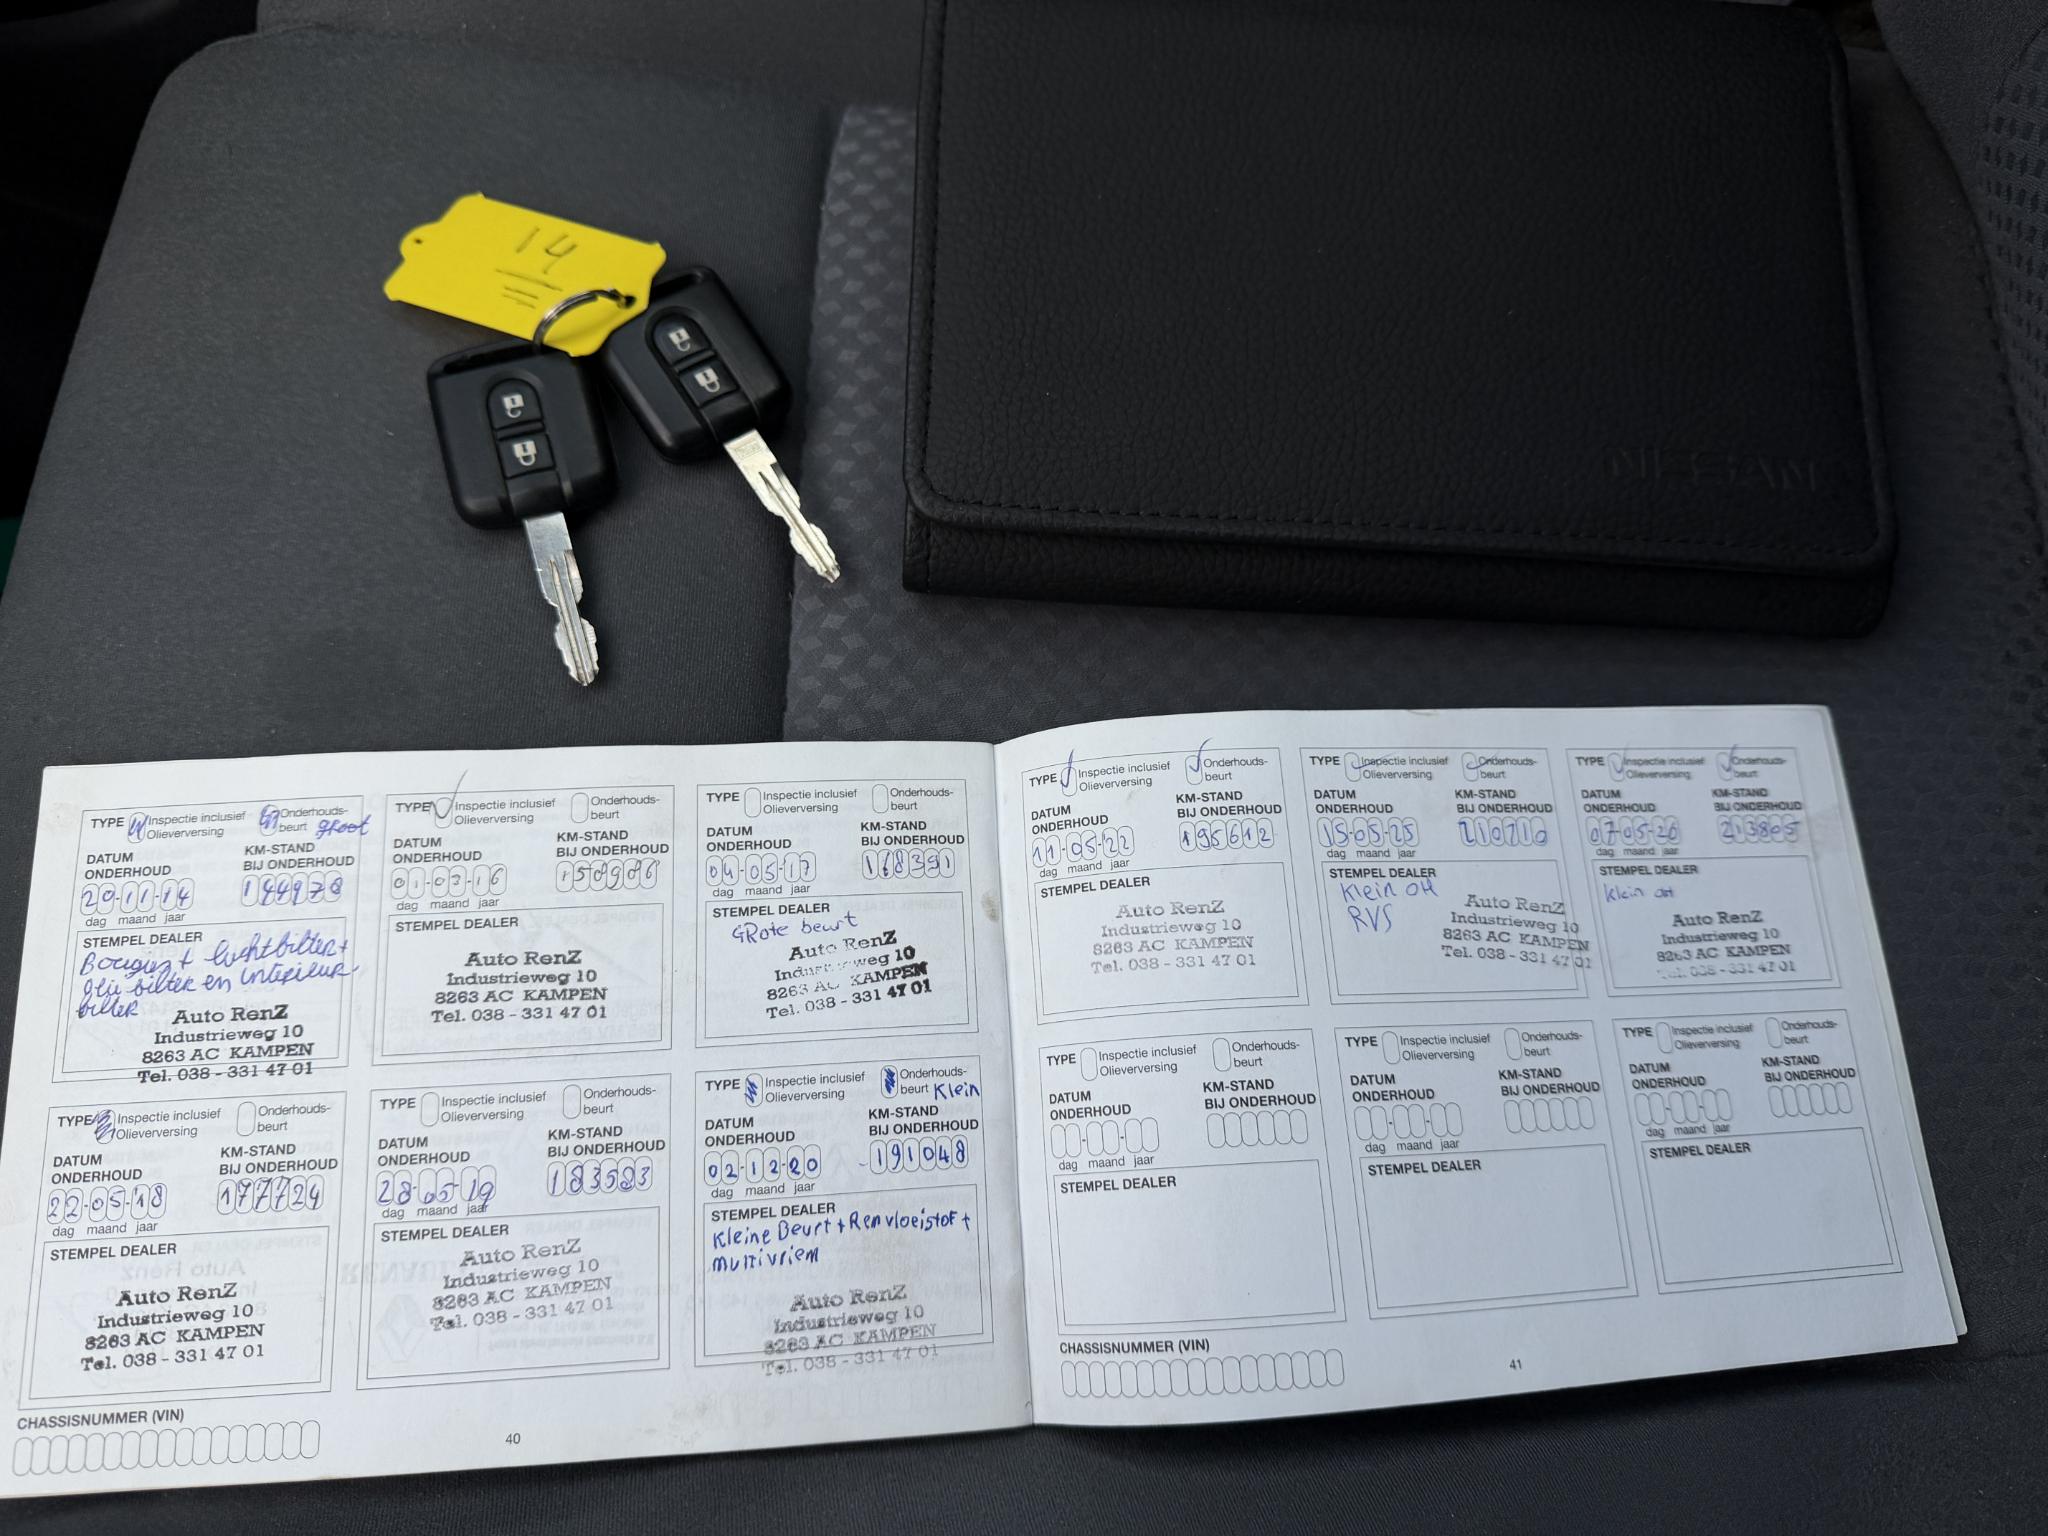 14
NISSAN
TYPE Inspectie inclusief Olieverversing Onderhouds-beurt groot
DATUM ONDERHOUD
KM-STAND BIJ ONDERHOUD
20-11-14 144978
dag maand jaar
STEMPEL DEALER
Bougies + luchtfilter +
Olie filter en interieur
filter
Auto RenZ
Industrieweg 10
8263 AC KAMPEN
Tel. 038 - 331 47 01
TYPE Inspectie inclusief Olieverversing Onderhouds-beurt
DATUM ONDERHOUD
KM-STAND BIJ ONDERHOUD
01-03-16 158986
dag maand jaar
STEMPEL DEALER
Auto RenZ
Industrieweg 10
8263 AC KAMPEN
Tel. 038 - 331 47 01
TYPE Inspectie inclusief Olieverversing Onderhouds-beurt
DATUM ONDERHOUD
KM-STAND BIJ ONDERHOUD
04-05-17 168391
dag maand jaar
STEMPEL DEALER
GRote beurt
Auto RenZ
Industrieweg 10
8263 AC KAMPEN
Tel. 038 - 331 47 01
TYPE Inspectie inclusief Olieverversing Onderhouds-beurt
DATUM ONDERHOUD
KM-STAND BIJ ONDERHOUD
22-05-18 177724
dag maand jaar
STEMPEL DEALER
Auto RenZ
Industrieweg 10
8263 AC KAMPEN
Tel. 038 - 331 47 01
TYPE Inspectie inclusief Olieverversing Onderhouds-beurt
DATUM ONDERHOUD
KM-STAND BIJ ONDERHOUD
28-05-19 183583
dag maand jaar
STEMPEL DEALER
Auto RenZ
Industrieweg 10
8263 AC KAMPEN
Tel. 038 - 331 47 01
TYPE Inspectie inclusief Olieverversing Onderhouds-beurt Klein
DATUM ONDERHOUD
KM-STAND BIJ ONDERHOUD
02-12-20 191048
dag maand jaar
STEMPEL DEALER
Kleine Beurt + Remvloeistof +
multiriem
Auto RenZ
Industrieweg 10
8263 AC KAMPEN
Tel. 038 - 331 47 01
CHASSISNUMMER (VIN)
40
TYPE Inspectie inclusief Olieverversing Onderhouds-beurt
DATUM ONDERHOUD
KM-STAND BIJ ONDERHOUD
11-05-22 195612
dag maand jaar
STEMPEL DEALER
Auto RenZ
Industrieweg 10
8263 AC KAMPEN
Tel. 038 - 331 47 01
TYPE Inspectie inclusief Olieverversing Onderhouds-beurt
DATUM ONDERHOUD
KM-STAND BIJ ONDERHOUD
15-05-25 210710
dag maand jaar
STEMPEL DEALER
Klein OH
RVS
Auto RenZ
Industrieweg 10
8263 AC KAMPEN
Tel. 038 - 331 47 01
TYPE Inspectie inclusief Olieverversing Onderhouds-beurt
DATUM ONDERHOUD
KM-STAND BIJ ONDERHOUD
07-05-26 213805
dag maand jaar
STEMPEL DEALER
Klein OH
Auto RenZ
Industrieweg 10
8263 AC KAMPEN
Tel. 038 - 331 47 01
TYPE Inspectie inclusief Olieverversing Onderhouds-beurt
DATUM ONDERHOUD
KM-STAND BIJ ONDERHOUD
dag maand jaar
STEMPEL DEALER
TYPE Inspectie inclusief Olieverversing Onderhouds-beurt
DATUM ONDERHOUD
KM-STAND BIJ ONDERHOUD
dag maand jaar
STEMPEL DEALER
TYPE Inspectie inclusief Olieverversing Onderhouds-beurt
DATUM ONDERHOUD
KM-STAND BIJ ONDERHOUD
dag maand jaar
STEMPEL DEALER
CHASSISNUMMER (VIN)
41